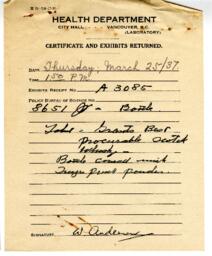 HEALTH DEPARTMENT
CITY HALL VANCOUVER, B.C.
(LABORATORY)
CERTIFICATE AND EXHIBITS RETURNED.
DATE Thursday, March 25/37
TIME 1:50 P.M.
EXHIBITS RECEIPT NO. A 3085
POLICE BUREAU OF SCIENCE NO.
8651 - Bottle
Label - Grants Best
Procurable Scotch
Whisky -
Bottle covered with
finger print powder.
SIGNATURE W. Anderson